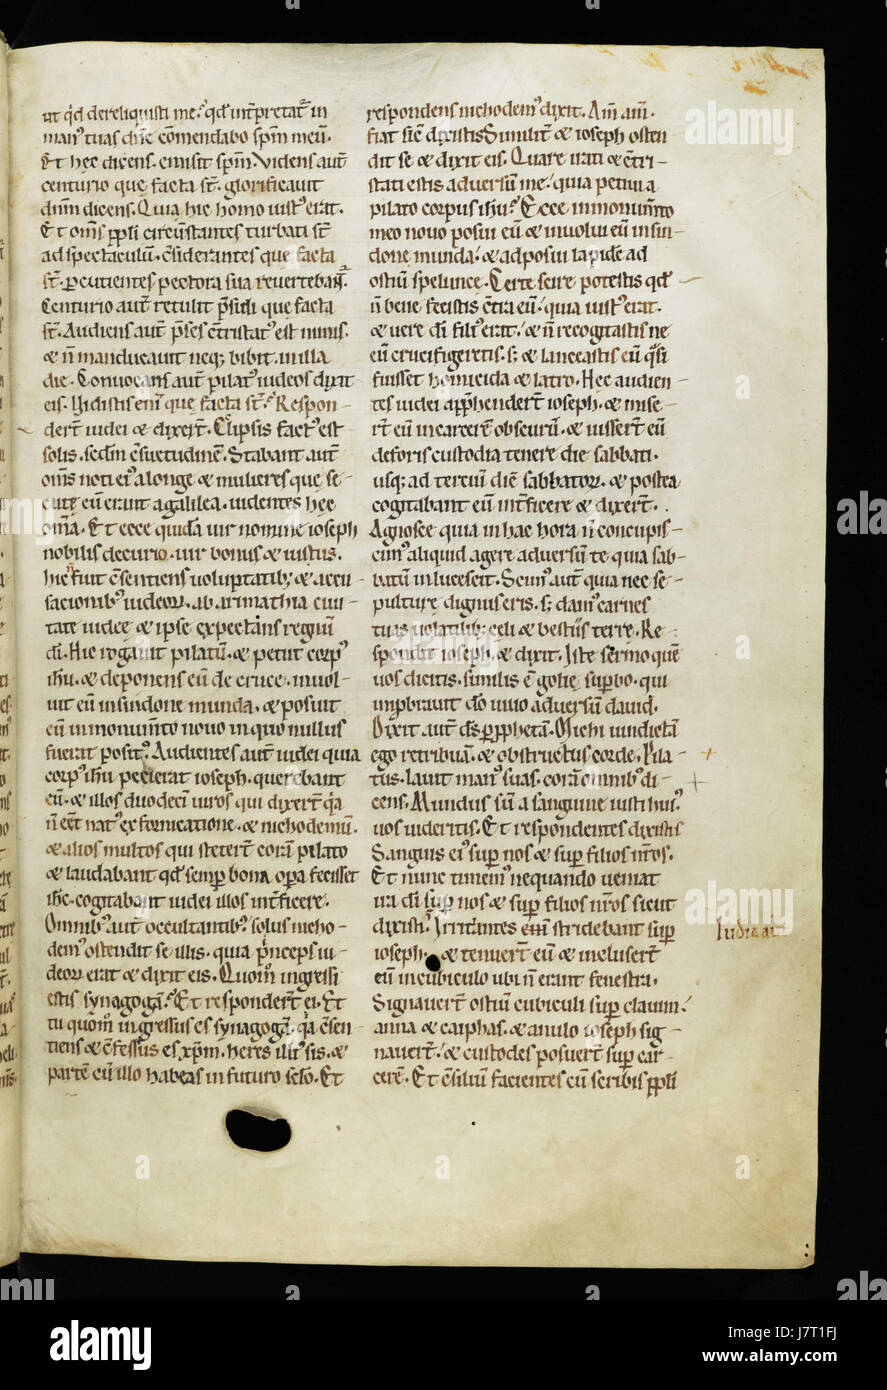 ut qd dereliquisti me.' qd int̄pretat̄ in
man' tuas dn̄e cōmendabo sp̄m meū.
Et hec dicens. emisit sp̄m. Videns aut̄
centurio que facta st̄. glorificauit
dn̄m dicens. Quia hic homo iust' erat.
Et om̄s ppl̄i circūstantes turbati st̄
ad spectaculū. c̄siderantes que facta
st̄. percutientes pectora sua reuertebant̄.
Centurio aut̄ retulit p̄sidi que facta
st̄. Audiens aut̄ p̄ses c̄tristat' est nimis.
& n̄ manducauit neq; bibit in illa
die. Conuocans aut̄ pilat' iudeos dixit
eis. Vidistis eni' que facta st̄.' Respon-
dert̄ iudei & dixert̄. Eclipsis fact' est
solis. sedm̄ c̄suetudinē. Stabant aut̄
om̄s noti ei' alonge & mulieres que se-
cute eū erant a galilea. uidentes hec
om̄a. Et ecce quidā uir nomine ioseph
nobilis decurio. uir bonus & iustus.
hic n̄ fuit c̄sentiens uoluptatib; & accu-
sacionib' iudeor̄. ab arimathia ciui-
tate iudee & ipse expectans regnū
dī. Hic rogauit pilatū. & petiit corp'
ihū. & deponens eū de cruce. inuol-
uit eū in sindone munda. & posuit
eū in monumn̄to nouo in quo nullus
fuerat posit'. Audientes aut̄ iudei quia
corp' ihū petierat ioseph. querebant
eū. & illos duodecī uiros qui dixert̄ qa
n̄ eēt nat' ex fornicatione. & nichodemū.
& alios multos qui stetert̄ corā pilato
& laudabant qd semp bona opa fecisset
ihc. cogitabant iudei illos int̄ficere.
Omnib' aut̄ occultantib' solus nicho-
dem' ostendit se illis. quia p̄nceps iu-
deor̄ erat & dixit eis. Quom̄ ingressi
estis synagogā.' Et respondert̄ ei. Et
tu quom̄ ingressus es synagogā. qa c̄sen-
tiens & c̄fessus es xp̄m. heres illi' sis. &
partē cū illo habeas in futuro sclo. Et
respondens nichodem' dixit. Am̄ am̄.
fiat sic̄ dixistis Similit̄ & ioseph osten-
dit se & dixit eis. Quare irati & c̄tri-
stati estis aduersū me.' quia petiui a
pilato corpus ihū.' Ecce in monumn̄to
meo nouo posui eū & inuolui eū in sin-
done munda.' & adposui lapidē ad
ostiū spelunce. Certe scire potestis qd
n̄ bene fecistis c̄tra eū.' quia iust' erat.
& uere dī fili' erat.' & n̄ recogitastis ne
eū crucifigeretis. s; & lanceastis eū q̄si
fuisset homicida & latro. Hec audien-
tes iudei app̄hendert̄ ioseph. & mise-
rt̄ eū in carcerē obscurū. & iussert̄ eū
deforis custodia tenere die sabbati.
usq; ad terciū diē sabbator̄. & postea
cogitabant eū int̄ficere & dixert̄.
Agnosce quia in hac hora n̄ concupis-
cim' aliquid agere aduersū te quia sab-
batū inlucescit. Scim' aut̄ quia nec se-
pulture dignus eris. s; dam' carnes
tuas uolatilib; celi & bestiis terre. Re-
spondit ioseph. & dixit. Iste sermo quē
uos dicitis. similis ē golie supbo. qui
impbrauit dō uiuo aduersū dauid.
Dixit aut̄ ds̄ p pphetā. Michi uindictā
ego retribuā. & obstructus corde. Pila-
tus. lauit man' suas. corā omnib' di-
cens. Mundus sū a sanguine iusti hui'.
uos uideritis. Et respondentes dixistis
Sanguis ei' sup nos & sup filios nr̄os.
Et nunc timem' nequando ueniat
ira dī sup nos & sup filios nr̄os sicut
dixisti.' Irritantes enī stridebant sup
ioseph. & tenuert̄ eū & inclusert̄
eū in cubiculo ubi n̄ erant fenestra.
Signauert̄ ostiū cubiculi sup clauim.'
anna & caiphas. & anulo ioseph sig-
nauert̄.' & custodes posuert̄ sup car-
cerē. Et c̄siliū facientes cū scribis ppl̄i
alamy
J7T1FJ
www.alamy.com